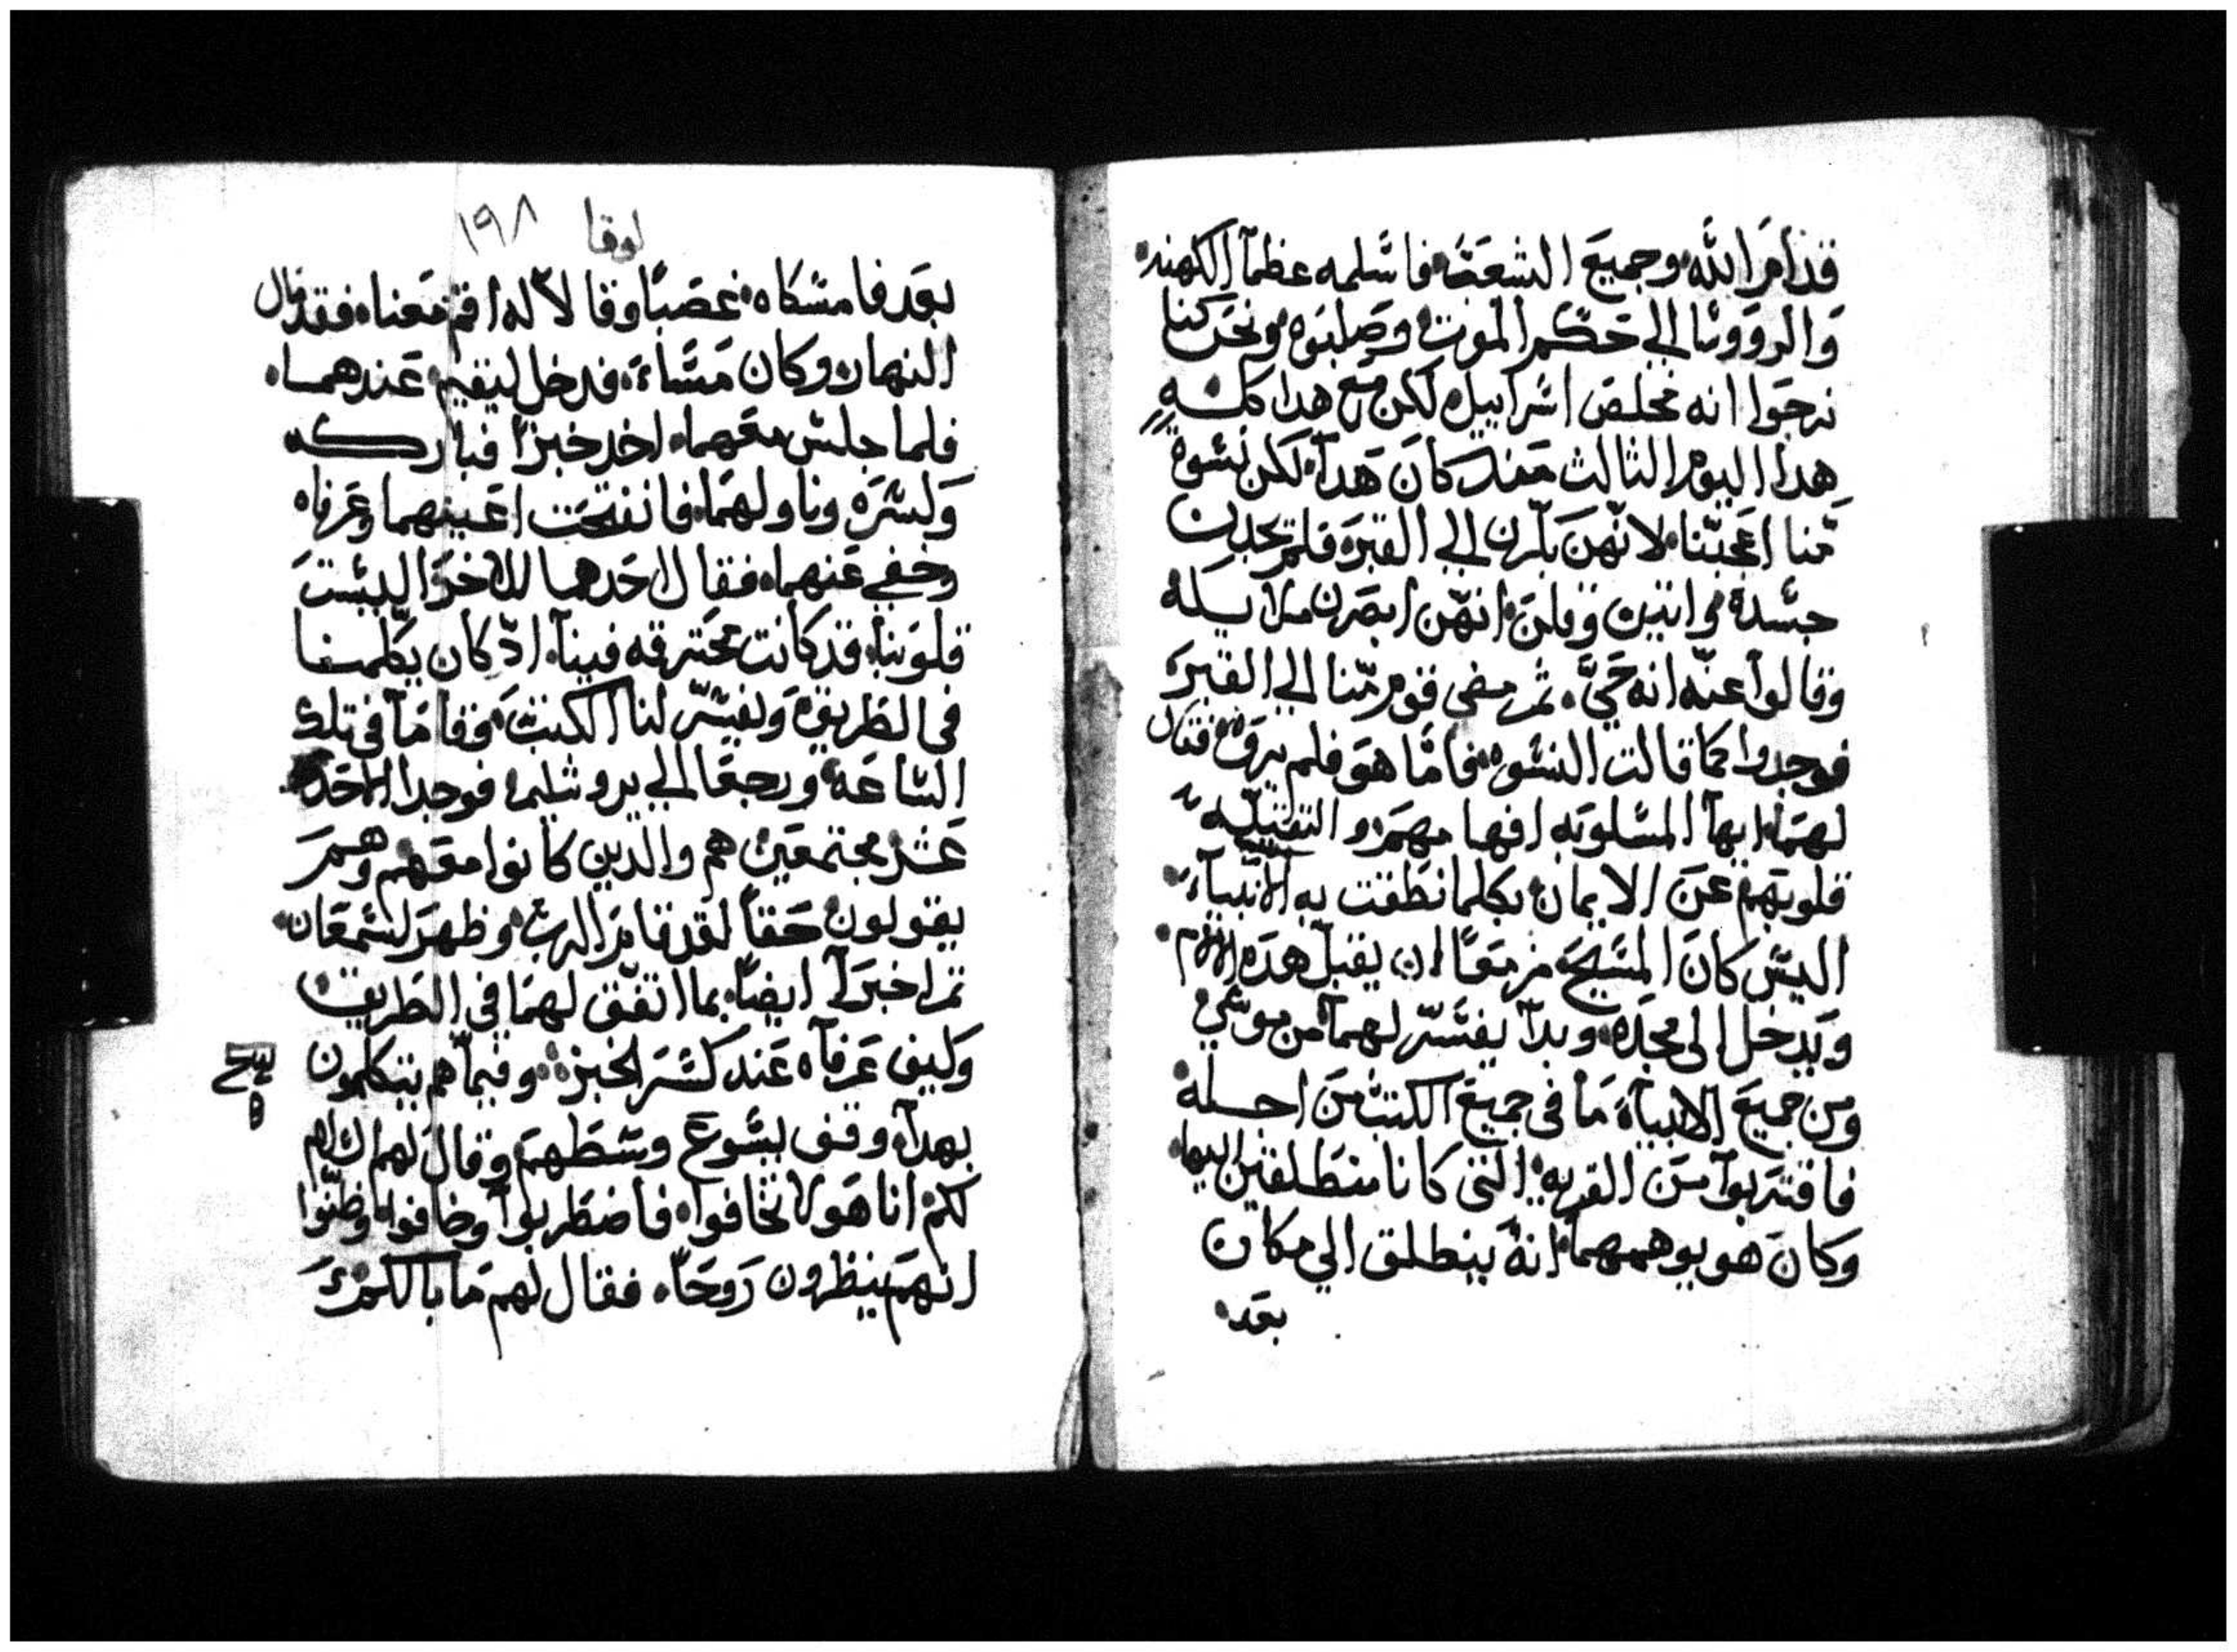 قدام الله وجميع الشعب فاسلمه عظمآ الكهنه
والروونا الي حكم الموت وصلبوه ونحن كنا
نرجوا انه مخلص اسراييل لكن مع هدا كله
هدا اليوم الثالث مند كان هدا لكن نسوه
منا اعجبننا لانهن بكرن الي القبر فلم يجدن
جسده واتين وقلن انهن ابصرن ملايكه
وقالوا عنه انه حي ثم مضي قوم منا الي القبر
فوجدوا كما قالت النسوه فاما هو فلم يروه فقال
لهما ايها المسلوبه افهامهم والثقيله
قلوبهم عن الايمان بكلما نطقت به الانبيآ
اليس كان المسيح مزمعا ان يقبل هده الالام
ويدخل الى مجده وبدآ يفسر لهمآ من موسي
ومن جميع الانبيآ ما في جميع الكتب من اجله
فاقتربوا من القريه التى كانا منطلقين اليها
وكان هو يوهمهما انه ينطلق الي مكان
بعد
لوقا ١٩٨
بعد فامسكاه غصبا وقالا له اقم معنا فقد مال
النهار وكان مسآء فدخل ليقيم عندهما
فلما جلس معهما اخد خبزا فباركه
وكسره وناولهما فانفتحت اعينهما وعرفاه
وخفي عنهما فقال احدهما للاخر اليست
قلوبنا قد كانت محترقه فينا اد كان يكلمنا
في الطريق ويفسر لنا الكتب وقاما في تلك
الساعه ورجعا الي يروشليم فوجدا الاحد
عشر مجتمعين هم والدين كانوا معهم وهم
يقولون حقا لقد قام الرب وظهر لسمعان
ثم اخبرآ ايضا بما اتفق لهما في الطريق
وكيف عرفآه عند كسر الخبز وفيما هم يتكلمون
بهدا وقف يسوع وسطهم وقال لهم السلام
لكم انا هو لا تخافوا فاضطربوا وخافوا وظنوا
انهم ينظرون روحا فقال لهم ما بالكم